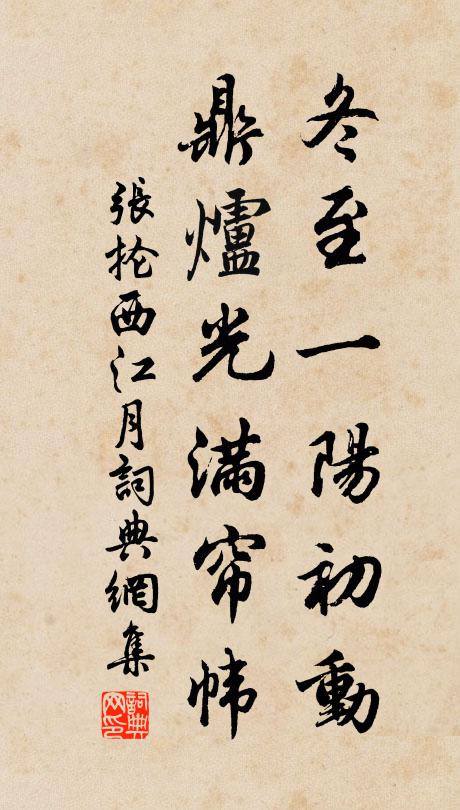 冬至一陽初動
鼎爐光滿帘幃
張抡西江月詞典網集
詞典网印